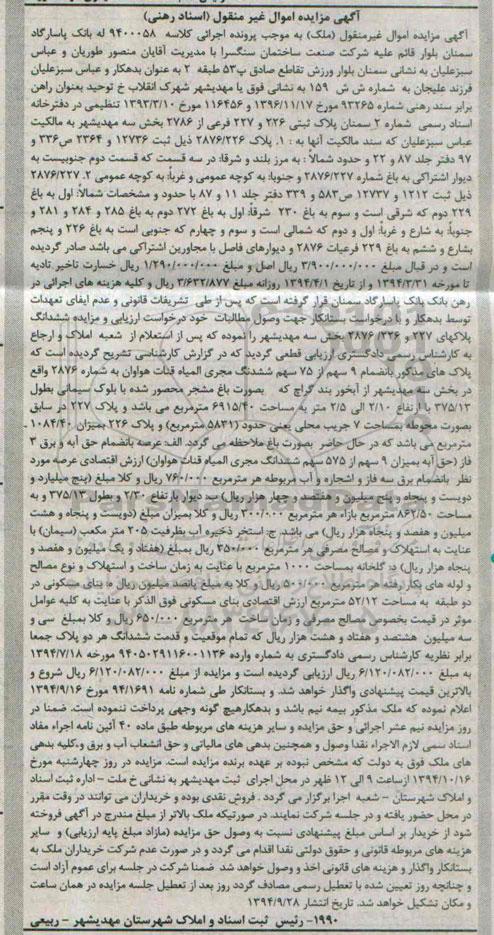 آگهی مزایده اموال غیر منقول (اسناد رهنی)
آگهی مزایده اموال غیرمنقول (ملک) به موجب پرونده اجرائی کلاسه ۹۴۰۰۰۵۸ له بانک پاسارگاد
سمنان بلوار قائم علیه شرکت صنعت ساختمان سنگسرا با مدیریت آقایان منصور طوریان و عباس
سبزعلیان به نشانی سمنان بلوار ورزش تقاطع صادق پ۵۳ طبقه ۲ به عنوان بدهکار و عباس سبزعلیان
فرزند علیجان به شماره ش ش ۱۵۹ به نشانی فوق یا مهدیشهر شهرک انقلاب خ توحید بعنوان راهن
برابر سند رهنی شماره ۹۳۲۶۵ مورخ ۱۳۹۶/۱۱/۱۷ و ۱۱۶۴۵۶ مورخ ۱۳۹۳/۳/۱۰ تنظیمی در دفترخانه
اسناد رسمی شماره ۲ سمنان پلاک ثبتی ۲۲۶ و ۲۲۷ فرعی از ۲۷۸۶ بخش سه مهدیشهر به مالکیت
عباس سبزعلیان که سند مالکیت آنها به : ۱. پلاک ۲۸۷۶/۲۲۶ ذیل ثبت ۱۲۷۳۶ و ۲۳۶۴ ص۳۳۶ و
۹۷ دفتر جلد ۸۷ و ۲۲ و حدود شمالاً : به مرز بلند و شرقا: در سه قسمت که قسمت دوم جنوبیست به
دیوار اشتراکی به باغ شماره ۲۸۷۶/۲۲۷ و جنوبا: به کوچه عمومی و غرباً: به کوچه عمومی ۲. ۲۸۷۶/۲۲۷
ذیل ثبت ۱۲۱۲ و ۱۲۷۳۷ ص۵۸۳ و ۳۳۹ دفتر جلد ۱۱ و ۸۷ با حدود و مشخصات شمالاً: اول به باغ
۲۲۹ دوم که شرقی است و سوم به باغ ۲۳۰ شرقاً: اول به باغ ۲۷۲ دوم به باغ ۲۸۵ و ۲۸۴ و ۲۸۱ و
جنوباً: به شارع و غرباً: اول و دوم که شمالی است و سوم و چهارم که جنوبی است به باغ ۲۲۶ و پنجم
بشارع و ششم به باغ ۲۲۹ فرعیات ۲۸۷۶ و دیوارهای فاصل با مجاورین اشتراکی می باشد صادر گردیده
است و در قبال مبلغ ۳/۹۰۰/۰۰۰/۰۰۰ ریال اصل و مبلغ ۱/۲۹۰/۰۰۰/۰۰۰ ریال خسارت تاخیر تادیه
تا مورخه ۱۳۹۴/۳/۳۱ و از تاریخ ۱۳۹۴/۴/۱ روزانه مبلغ ۳/۶۳۲/۸۷۷ ریال و کلیه هزینه های اجرائی در
رهن بانک بانک پاسارگاد سمنان قرار گرفته است که پس از طی تشریفات قانونی و عدم ایفای تعهدات
توسط بدهکار و بنا به درخواست بستانکار جهت وصول مطالبات خود درخواست ارزیابی و مزایده ششدانگ
پلاکهای ۲۲۷ و ۲۸۷۶/۲۲۶ بخش سه مهدیشهر را نموده که پس از استعلام از شعبه املاک و ارجاع
به کارشناس رسمی دادگستری ارزیابی قطعی گردید که در گزارش کارشناسی تشریح گردیده است که
پلاک های مذکور بانضمام ۹ سهم از ۷۵ سهم ششدنگ مجری المیاه قنات هواوان به شماره ۲۸۷۶ واقع
در بخش سه مهدیشهر از آبخور بند گراچ که بصورت باغ مشجر محصور شده با بلوک سیمانی بطول
۳۷۵/۱۳ با ارتفاع ۲/۱۰ الی ۲/۵ متر به مساحت ۶۹۱۵/۴۰ مترمربع می باشد و پلاک ۲۲۷ در سابق
بصورت محوطه بمساحت ۷ جریب محلی یعنی حدود (۵۸۳۱ مترمربع) و پلاک ۲۲۶ بمیزان ۱۰۸۴/۴۰
مترمربع می باشد که در حال حاضر بصورت باغ ملاحظه می گردد. الف: عرصه بانضمام حق آبه و برق ۳
فاز (حق آبه بمیزان ۹ سهم از ۵۷۵ سهم ششدانگ مجری المیاه قنات هواوان) ارزش اقتصادی عرصه مورد
نظر بانضمام برق سه فاز و اشجاره و آب مربوطه هر مترمربع ۷۶۰/۰۰۰ ریال و کلا مبلغ (پنج میلیارد و
دویست و پنجاه و پنج میلیون و هفتصد و چهار هزار ریال) ب: دیوار بارتفاع ۲/۳۰ و بطول ۳۷۵/۱۳ و به
مساحت ۸۶۲/۵۰ مترمربع بازاء هر مترمربع ۳۰۰/۰۰۰ ریال و کلا بمیزان مبلغ (دویست و پنجاه و هشت
میلیون و هفصد و پنجاه هزار ریال) می باشد. ج: استخر ذخیره آب بظرفیت ۲۰۵ متر مکعب (سیمان) با
عنایت به استهلاک و مصالح مصرفی هر مترمربع ۳۵۰/۰۰۰ ریال بمبلغ (هفتاد و یک میلیون و هفصد و
پنجاه هزار ریال) د: گلخانه بمساحت ۱۰۰۰ مترمربع با عنایت به زمان ساخت و استهلاک و نوع مصالح
و لوله های بکار رفته هر مترمربع ۵۰۰/۰۰۰ ریال و کلا به مبلغ پانصد میلیون ریال ه: بنای مسکونی در
دو طبقه به مساحت ۵۲/۱۲ مترمربع ارزش اقتصادی بنای مسکونی فوق الذکر با عنایت به کلیه عوامل
موثر در قیمت بخصوص مصالح مصرفی و زمان ساخت هر مترمربع ۶۵۰/۰۰۰ ریال و کلا بمبلغ سی و
سه میلیون هشتصد و هفتاد و هشت هزار ریال که تمام موقعیت و قدمت ششدانگ هر دو پلاک جمعا
برابر نظریه کارشناس رسمی دادگستری به شماره وارده ۹۴۰۵۰۲۹۱۱۶۰۰۱۱۳۶ مورخه ۱۳۹۴/۷/۱۸
به مبلغ ۶/۱۲۰/۰۸۲/۰۰۰ ریال ارزیابی گردیده است و مزایده از مبلغ ۶/۱۲۰/۰۸۲/۰۰۰ ریال شروع و
بالاترین قیمت پیشنهادی واگذار خواهد شد. و بستانکار طی شماره نامه ۹۴/۱۶۹۱ مورخ ۱۳۹۴/۹/۱۶
اعلام نموده که ملک مذکور بیمه نیم باشد و بدهکارهیچ گونه وجهی پرداخت ننموده است. ضمنا در
روز مزایده نیم عشر اجرائی و حق مزایده و سایر هزینه های مربوطه طبق ماده ۴۰ آئین نامه اجراء مفاد
اسناد سمی لازم الاجراء نقدا وصول و همچنین بدهی های مالیاتی و حق انشعاب آب و برق و.کلیه بدهی
های ملک فوق به دولت که مشخص نبوده بر عهده برنده مزایده است. مزایده در روز چهارشنبه مورخ
۱۳۹۴/۱۰/۱۶ ازساعت ۹ الی ۱۲ ظهر در محل اجرای ثبت مهدیشهر به نشانی خ ملت - اداره ثبت اسناد
و املاک شهرستان - شعبه اجرا برگزار می گردد . فروش نقدی بوده و خریداران می توانند در وقت مقرر
در محل حضور یافته و در جلسه شرکت نمایند. در صورتیکه ملک بالاتر از مبلغ مندرج در آگهی فروخته
شود از خریدار بر اساس مبلغ پیشنهادی نسبت به وصول حق مزایده (مازاد مبلغ پایه ارزیابی) و سایر
هزینه های مربوطه قانونی و حقوق دولتی نقدا اقدام می گردد و در صورت عدم شرکت خریداران ملک به
بستانکار واگذار و هزینه های قانونی اخذ و وصول خواهد شد ضمنا شرکت در جلسه برای عموم آزاد است
و چنانچه روز تعیین شده با تعطیل رسمی مصادف گردد روز بعد از تعطیل جلسه مزایده در همان ساعت
و مکان تشکیل خواهد شد. تاریخ انتشار ۱۳۹۴/۹/۲۸
۱۹۹۰- رئیس ثبت اسناد و املاک شهرستان مهدیشهر - ربیعی